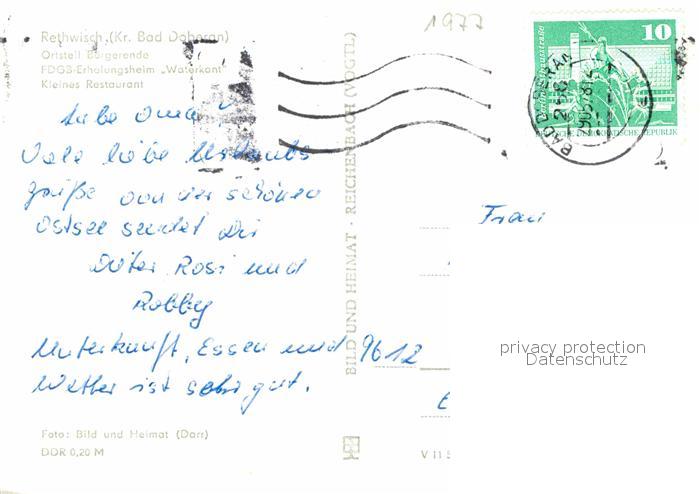 1977
Rethwisch (Kr. Bad Doberan)
Ortsteil Börgerende
FDGB-Erholungsheim „Waterkant"
Kleines Restaurant
10
BAD DOBERAN
DEMOKRATISCHE REPUBLIK
Liebe Oma!
Viele liebe Urlaubs
grüße von der schönen
Ostsee sendet Dir
Dieter Rosi und
Robby
Unterkunft, Essen und
Wetter ist sehr gut.
Frau
9612
BILD UND HEIMAT · REICHENBACH (VOGTL)
privacy protection
Datenschutz
Foto: Bild und Heimat (Darr)
DDR 0,20 M
V 11 5